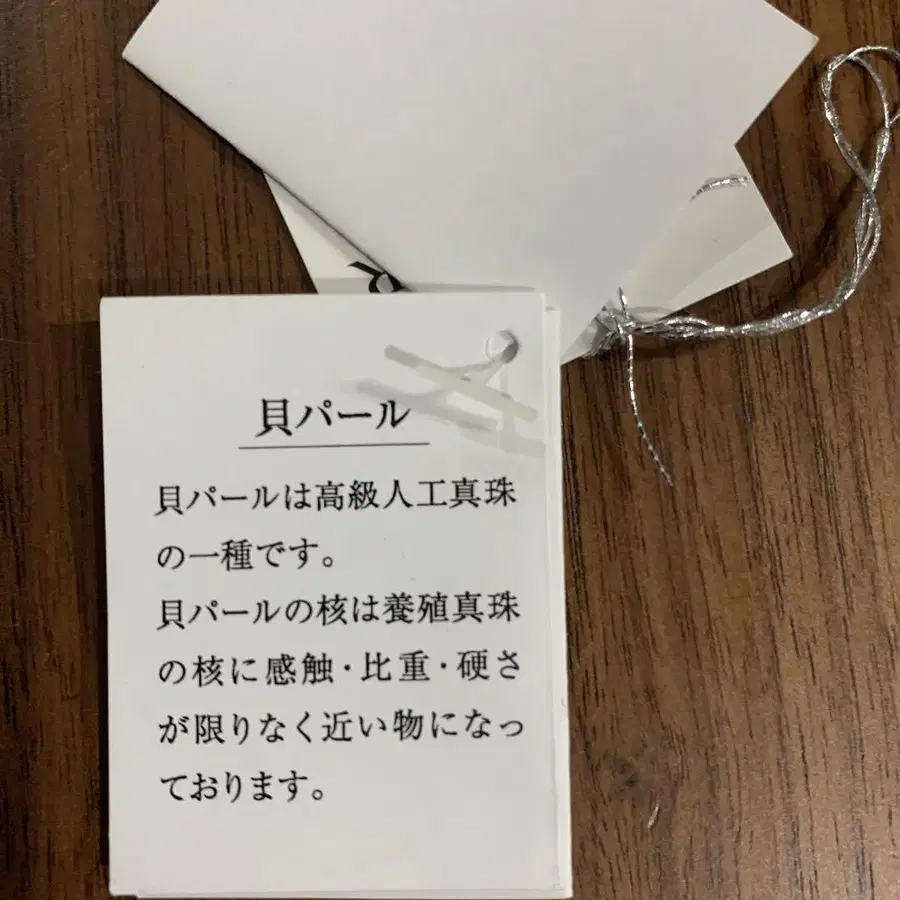 貝パール
貝パールは高級人工真珠
の一種です。
貝パールの核は養殖真珠
の核に感触・比重・硬さ
が限りなく近い物になっ
ております。